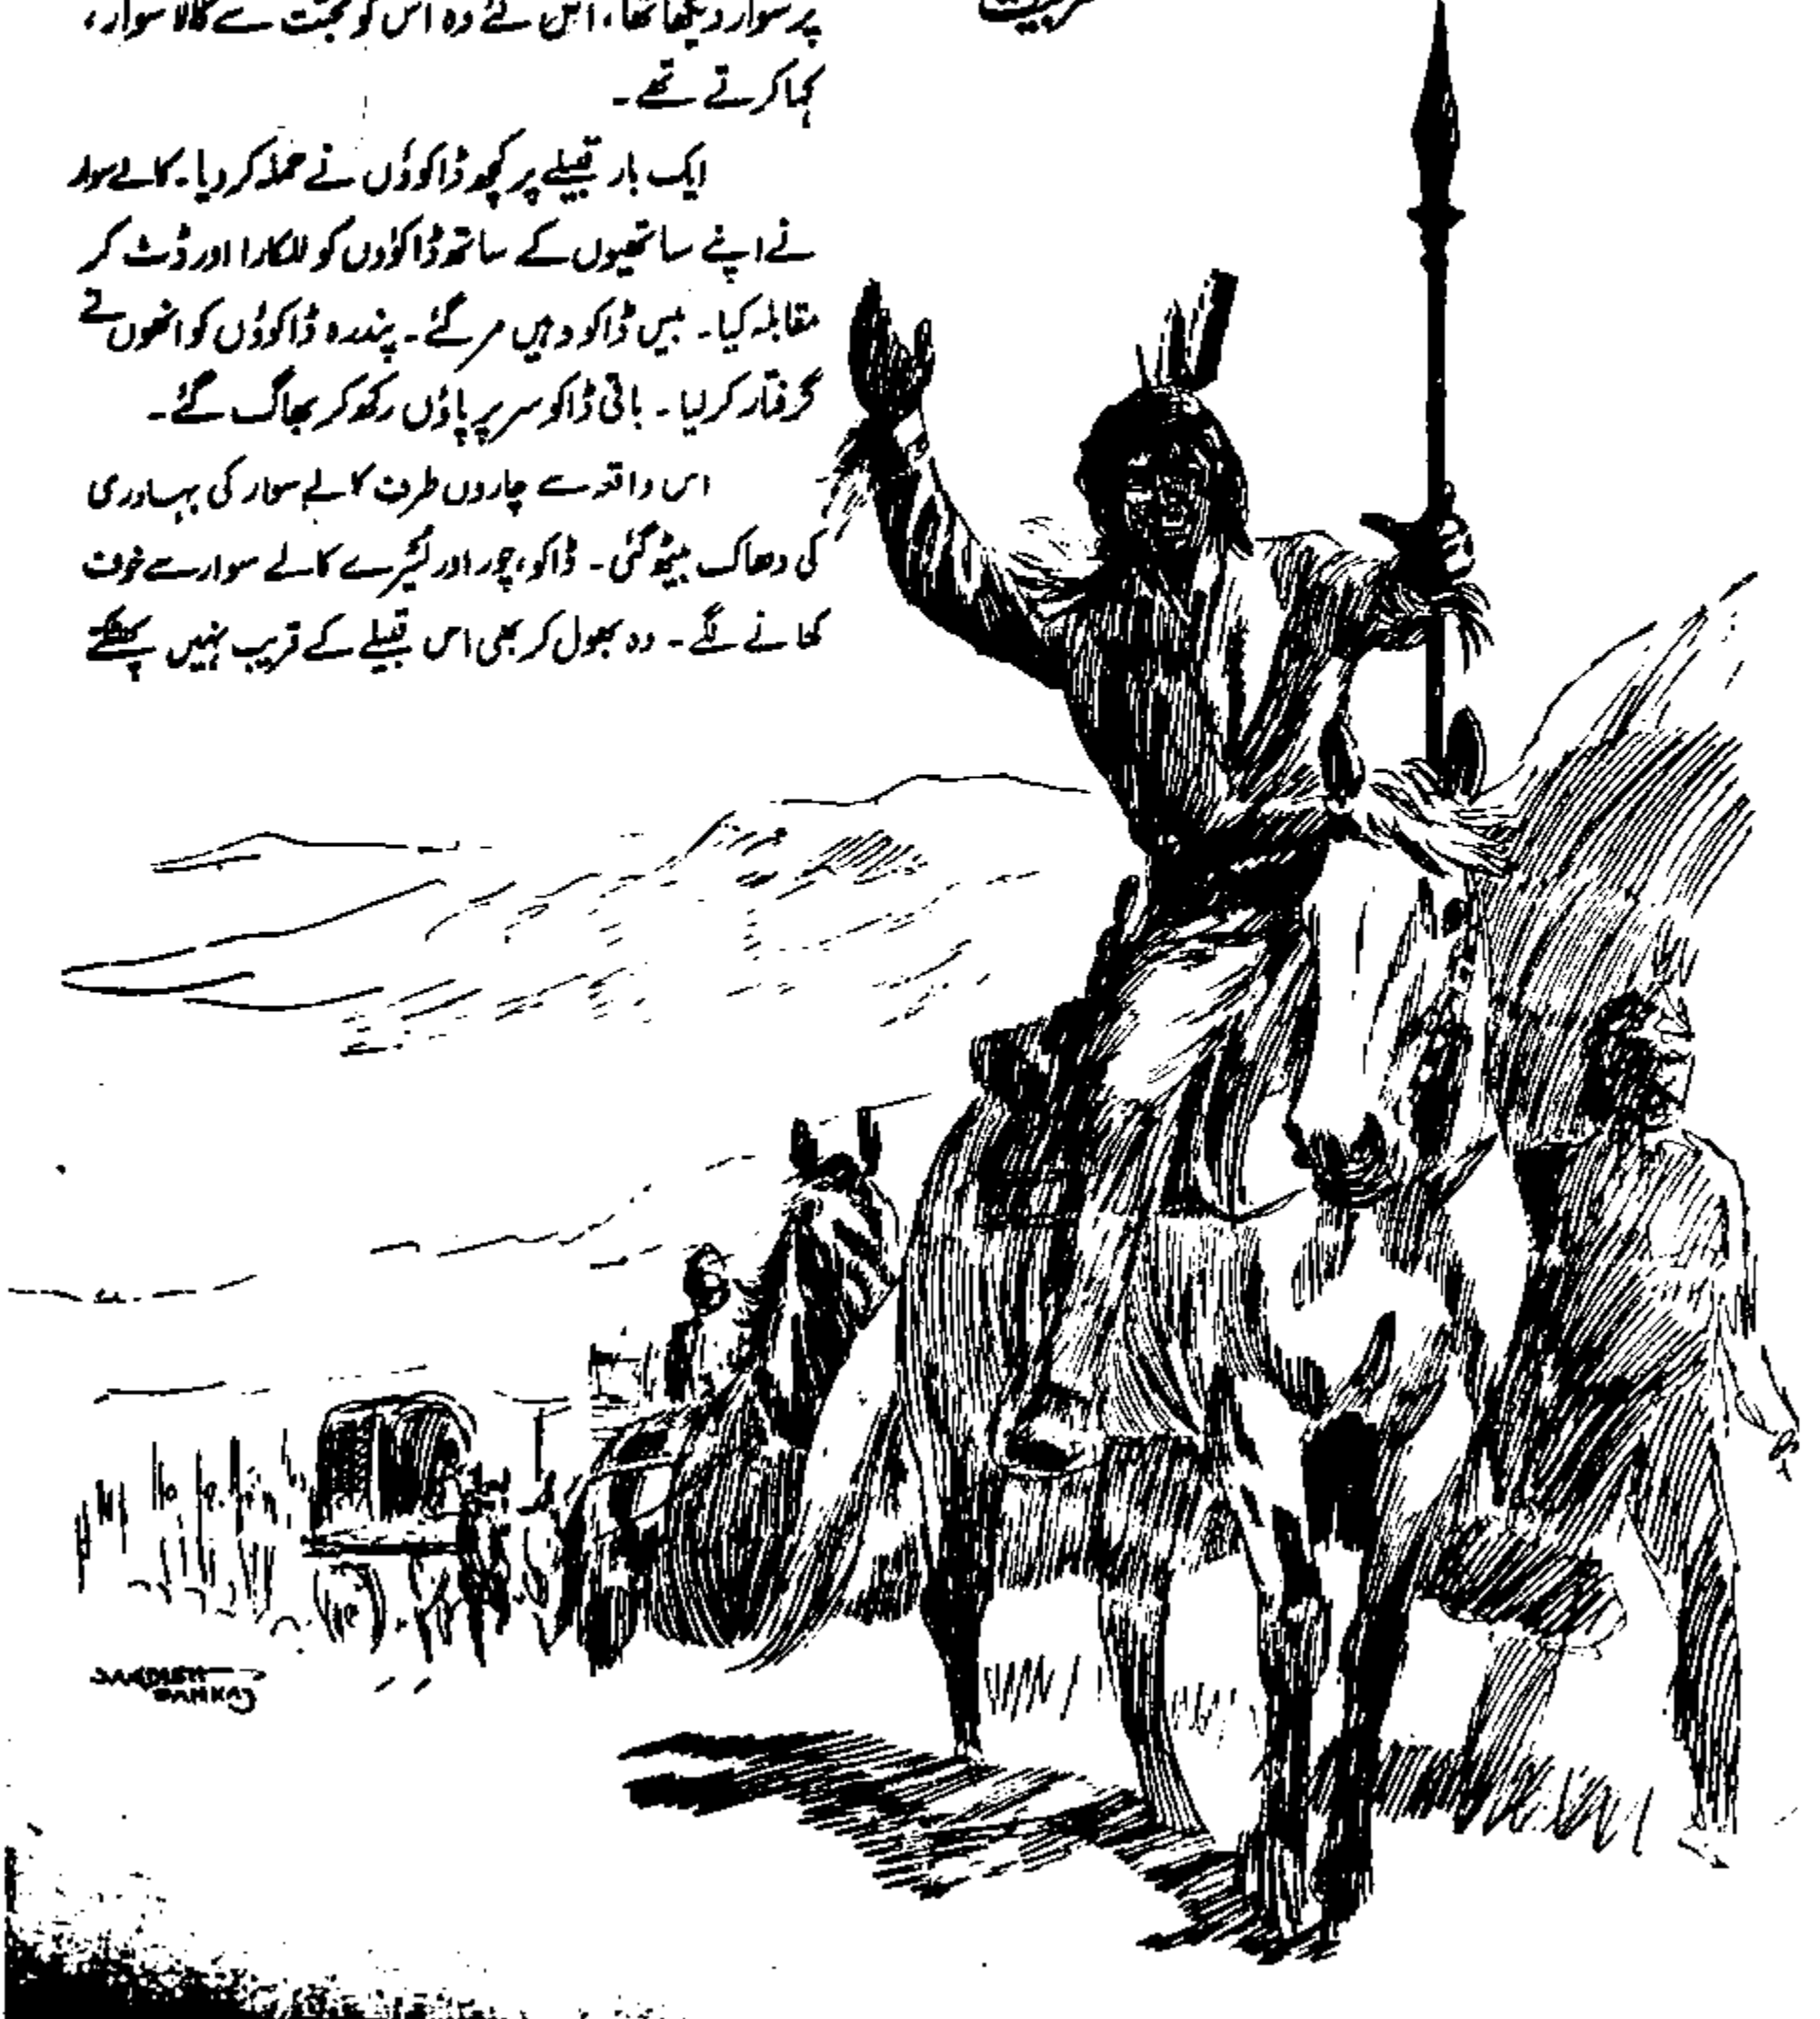 پر سوار دیکھا تھا، اس لئے وہ اس کو محبت سے کالا سوار،
کہا کرتے تھے۔
ایک بار قبیلے پر کچھ ڈاکوؤں نے حملہ کر دیا۔ کالے سوار
نے اپنے ساتھیوں کے ساتھ ڈاکوؤں کو للکارا اور ڈٹ کر
مقابلہ کیا۔ بیس ڈاکو وہیں مر گئے۔ پندرہ ڈاکوؤں کو انھوں نے
گرفتار کر لیا۔ باقی ڈاکو سر پر پاؤں رکھ کر بھاگ گئے۔
اس واقعہ سے چاروں طرف کالے سوار کی بہادری
کی دھاک بیٹھ گئی۔ ڈاکو، چور اور لٹیرے کالے سوار سے خوف
کھانے لگے۔ وہ بھول کر بھی اس قبیلے کے قریب نہیں پھٹکتے
JAGDISH
PANKAJ